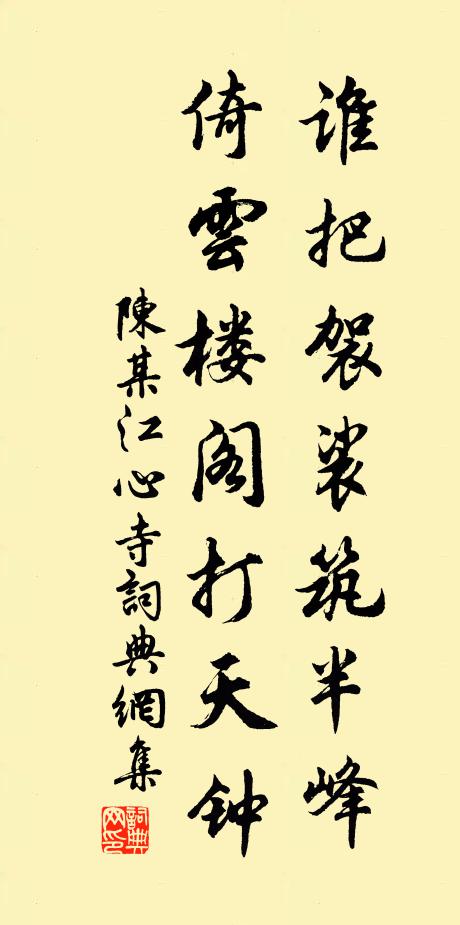 誰把袈裟筑半峰
倚雲楼阁打天钟
陳某江心寺詞典網集
詞典网印